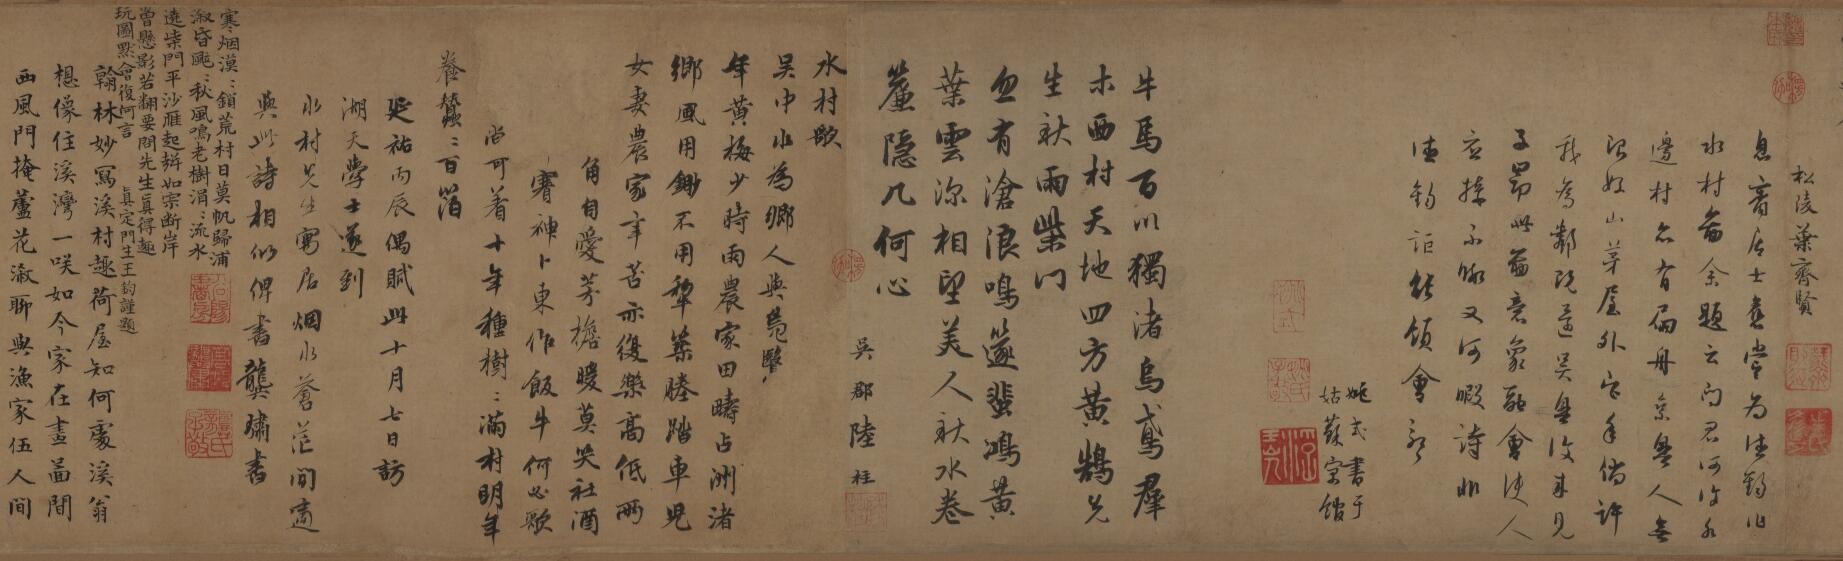 松陵葉齊賢
息齋居士舊嘗為德鈞作
水村圖余題云問君何許水
邊村亦有扁舟京無人無
訟如山茅屋外它年倘許
我為鄰既還吳無復來見
子昂此圖意象融會使人
應接不暇又何暇詩此
德鈞詎能領會詩
姚式書于
姑蘇官館
牛馬百川獨渚烏鳶群
木西村天地四方黃鵠兄
生秋雨柴門
忽有滄浪鳴邃蜚鴻黃
葉雲深相望美人秋水卷
簾隱几何心
吳郡陸柱
水村歌
吳中水為鄉人與鳧鷖
年黃梅少時雨農家田疇占洲渚
鄉風用鋤不用犁築塍踏車兒
女妻農家辛苦亦復樂高低兩
角自愛芳檐暖莫笑社酒
賽神卜東作飯牛何必歌
尚可着十年種樹滿村明年
養蠶百箔
延祐丙辰偶賦此十月七日訪
湖天學士遂到
水村兄生寓居烟水蒼茫間適
與此詩相似俾書龔璛書
寒烟漠漠鎖荒村日莫帆歸浦
溆昏颭颭秋風鳴老樹涓涓流水
遶柴門平沙雁起斜如宗斷岸
曾懸影若翻要問先生真得趣
玩圖默會復何言
真定門生王鈞謹題
翰林妙寫溪村趣荷屋知何處溪翁
想像住溪灣一笑如今家在畫啚間
西風門掩蘆花溆聊與漁家伍人間